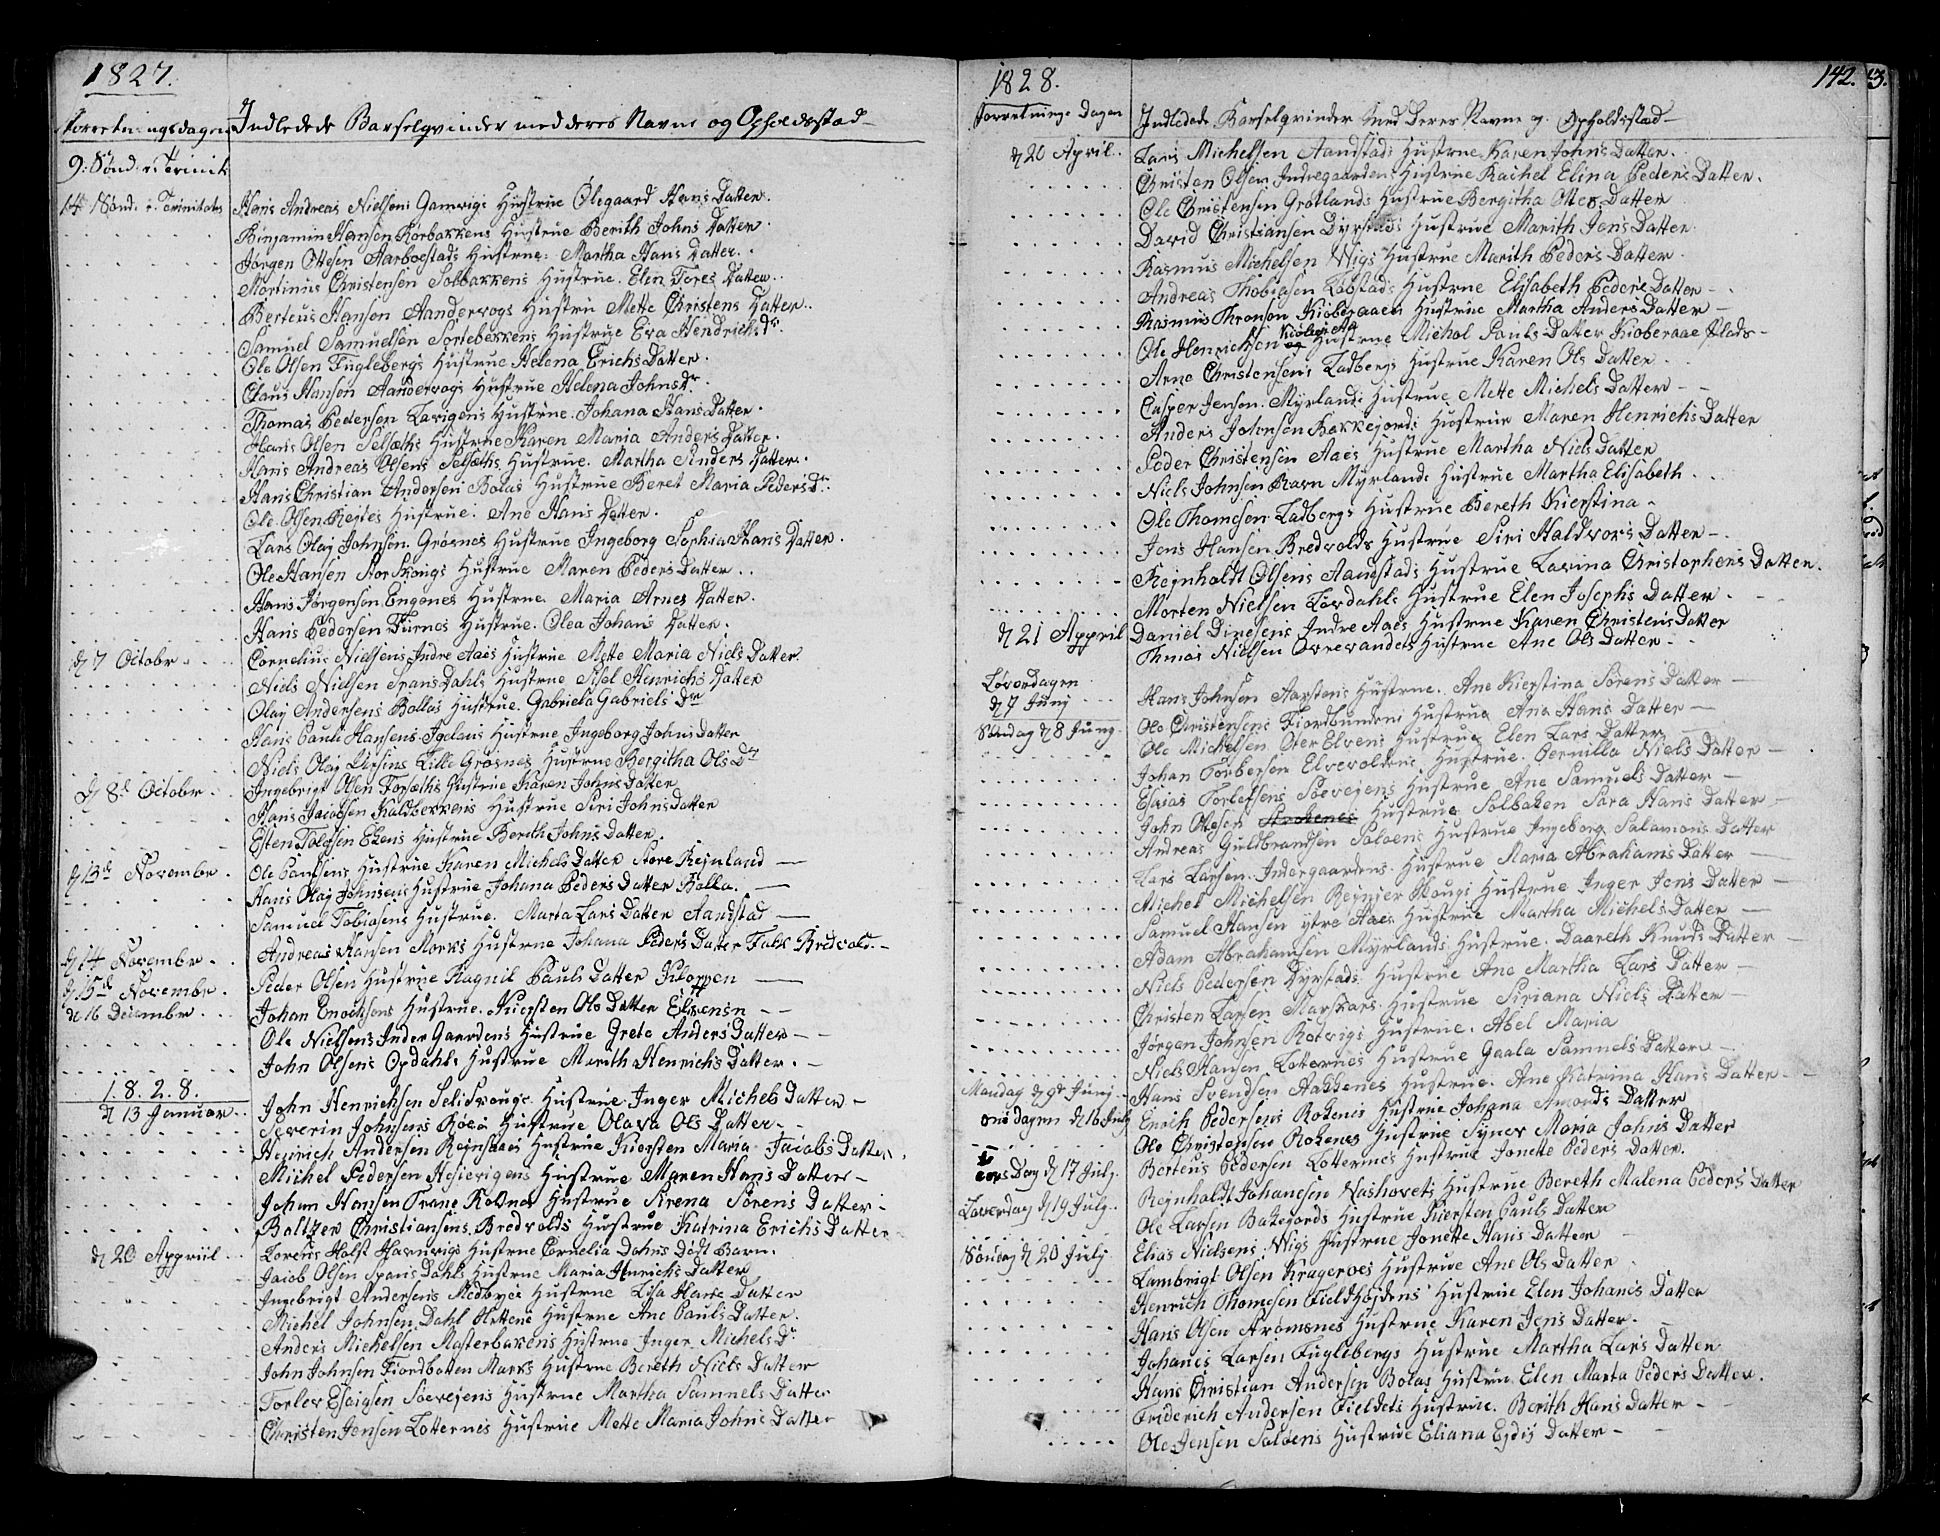 1827.
Forretningsdagen Indledede Barselqvinder med deres Navne og Opholdsstad
9: Sønd: e: Trinit
14 Sønd: e: Trinitatis Hans Andreas Nielsens Gamvigs Hustrue Olegaard Hans Datter.
Binjamin Hansen Rørbakkens Hustrue Berith Johns Datter
Jørgen Ottesen Aarboestads Hustrue: Martha Hans Datter.
Mortinus Christensen Solbakkens Hustrue. Elen Tores Datter.
Berteus Hansen Aandervogs Hustru Mette Christens Datter.
Samuel Samuelsen Sortebekkens Hustrue Eva Hendrichs Dr.
Ole Olsen Fuglebergs Hustrue Helena Erichs Datter.
Claus Hanson Aandervogs Hustrue Helena Johns Dr.
Thomas Pedersen Lavigens Hustrue. Johana Hans Datter.
Hans Olsen Selsæths Hustrue Karen Maria Anders Datter.
Hans Andreas Olsens Selsæths Hustrue. Martha Sinders Datter.
Hans Christian Andersen Bolas Hustrue Beret Maria Peders Dr.
Ole Olsen Rejtes Hustrue. Ane Hans Datter.
Lars Olaj Johnsen Grøsnes Hustrue Ingeborg Sophia Hans Datter.
Ole Hansen Storskougs Hustrue Maren Peders Datter.
Hans Jørgensen Engenes Hustrue Maria Arnes Datter.
Hans Pedersen Furnes Hustrue. Olea Johans Datter.
d 7 Octobr Cornelius Nielsens Indre Aaes Hustrue Mette Maria Niels Datter
Niels Nielsen Spans Dahls Hustrue Sisel Henrichs Datter
Olaj Andersens Bollas Hustrue Gabriela Gabriels Dr
Hans Pauli Hansens Hustrue Ingeborg Johns Datter
Niels Olaj Lille Grøsnes Hustrue Bergitha Ols Dr
d 8d Octobr Ingebrigt Olsen Forsæths Hustrue Karen Johns Datter
Hans Jacobsen Kaldbekkens Hustrue Siri Johns Datter
Esten Tolofsen Ekens Hustrue Berith Johns Datter.
d 13d Novembr Ole Paulsens Hustrue Karen Michels Datter Store Rejnland
Hans Olaj Johnsens Hustrue Johana Peders Datter Bolla.
Samuel Tobiasens Hustrue. Marta Lars Datter Aandstad
d 14 Novembr Andreas Hansen Morks Hustrue Johana Peders Datter Falk Bredvold.
d 15d Novembr Peder Olsen Hustrue Ragnil Pauls Datter Kloppen
d 16 Decembr Johan Enochsons Hustrue. Kiersten Ols Datter Elvensn
Ole Nielsens Inder Gaardens Hustrue Grete Anders Datter
John Olsens Opdahls Hustrue Merith Henrichs Datter.
1.8.2.8.
d 13 Januar John Henrichsen Selidkougs Hustrue Inger Michels Datter
Severin Johnsens Røeø Hustrue Olava Ols Datter
Henrich Andersen Rejnsaaes Hustrue Kiersten Maria Jacobs Datter
Michel Pedersen Hesjevigens Hustrue Maren Hans Datter
Johan Hansen Trane Roknes Hustrue Sirena Sørens Datter
Baltzer Christiansens Bredvolds Hustrue Katrina Erichs Datter
d 20 Appriil Lorents Holst Havnvigs Hustrue Cornelia Dahns Dødt Barn.
Jacob Olsen Spans Dahls Hustrue Maria Henrichs Datter
Ingebrigt Andersens Medbyes Hustrue Lisa Hans Datter
Michel Johnsen Dahl Slettene Hustrue Ane Pauls Datter
Anders Michelsen Masterbakens Hustrue Inger Michels Dr
John Johnsen Fiordbotten Marks Hustrue Bereth Niels Datter
Torlev Esaigsen Søevejens Hustrue Martha Samuels Datter
Christen Jensen Lotternes Hustrue Mette Maria Johns Datter
1828. 142.
Forretnings Dagen Indledede Barselqvinder Med Deres Navne og Opholdsstad
d 20 April. Lars Michelsen Aandstads Hustrue Karen Johns Datter.
Christen Olsen Indregaardens Hustrue Rachel Elina Peders Datter.
Ole Christensen Grøtlands Hustrue Bergitha Ottes Datter
David Christiansen Dyrstads Hustrue Marith Jens Datter
Rasmus Michelsen Wigs Hustrue Marith Peders Datter
Andreas Thobiasen Løbstads Hustrue Elisabeth Peders Datter
Rasmus Thronson Kioberaaen Hustrue Martha Anders Datter
Ole Henrichsen Hustrue Michol Pauls Datter Kioberaae Plads
Arne Christensens Ladbergs Hustrue Karen Ols Datter
Casper Jensen Myrlands Hustrue Mette Michels Datter
Anders Johnsen Bakkejords Hustrue Maren Henrichs Datter
Peder Christensen Aaes Hustrue Martha Niels Datter
Niels Johnsen Ravn Myrlands Hustrue Martha Elisabeth
Ole Thomesen Ladbergs Hustrue Bereth Kierstina
Jens Hansen Bredvolds Hustrue Siri Haldvors Datter
Rejnholdt Olsens Aandstads Hustrue Lavina Christophers Datter
Morten Nielsen Løvdahls Hustrue Elen Josephs Datter
d 21 Appriil Daniel Dinesens Indre Aaes Hustrue Karen Christens Datter
Thmas Nielsen Ovrevandets Hustrue Ane Ols Datter
Løverdagen
d 7 Junj Hans Johnsen Aarstens Hustrue. Ane Kierstina Sørens Datter
Ole Christensens Fiordbundens Hustrue Ana Hans Datter
Søndag d 8 Junj Ole Michelsen Oter Elvens Hustrue Elen Lars Datter
Johan Torbersen Elvevoldens Hustrue. Pernilla Niels Datter
Esaias Torlefsens Søevejens Hustrue Ane Samuels Datter
John Otesen Hustrue Solbaken Sara Hans Datter
Andreas Guldbrandsen Saloens Hustrue Ingeborg Salamons Datter
Lars Larsen Indergaardens Hustrue Maria Abrahams Datter
Michel Michelsen Rejnjer Skougs Hustrue Inger Jens Datter
Samuel Hansen ytre Aaes Hustrue Martha Michels Datter
Adam Abrahamsen Myrlands Hustrue. Daareth Knuds Datter
Niels Pedersen Dyrstads Hustrue Ane Martha Lars Datter
Christen Larsen Marskars Hustrue Siriana Niels Datter
Jørgen Johnsen Rotvigs Hustrue. Abel Maria
Niels Hansen Lotternes Hustrue Gaala Samuels Datter
Mandag d 9d Junj Hans Svendsen Aakkenes Hustrue. Ane Katrina Hans Datter
onsdagen d 16 Julj Enrich Pedersens Rokenes Hustrue Johana Amonds Datter
Ole Christensen Rokenes Hustrue Synev Maria Johns Datter
Berteus Pedersen Lotternes Hustrue Jonette Peders Datter.
ors Dag d 17 Julj. Rejnholdt Johanesen Nashovets Hustrue Bereth Malena Peders Datter
Løverdag d 19 Julj. Ole Larsen Bakejords Hustrue Kiersten Pauls Datter
Elias Nielsens Wigs Hustrue Jonette Hans Datter
Søndag d 20 Julj Lambrigt Olsen Kragerøes Hustrue Ane Ols Datter
Henrich Thomesen Field Højdens Hustrue Elen Johanes Datter
Hans Olsen Arømsnes Hustrue Karen Jens Datter.
Johanes Larsen Fuglebergs Hustrue Martha Lars Datter
Hans Christian Andersen Bolas Hustrue Elen Marta Peders Datter.
Friderich Andersen Fieldets Hustrue. Berith Hans Datter
Ole Jensen Saløens Hustrue Eliana Ejdis Datter